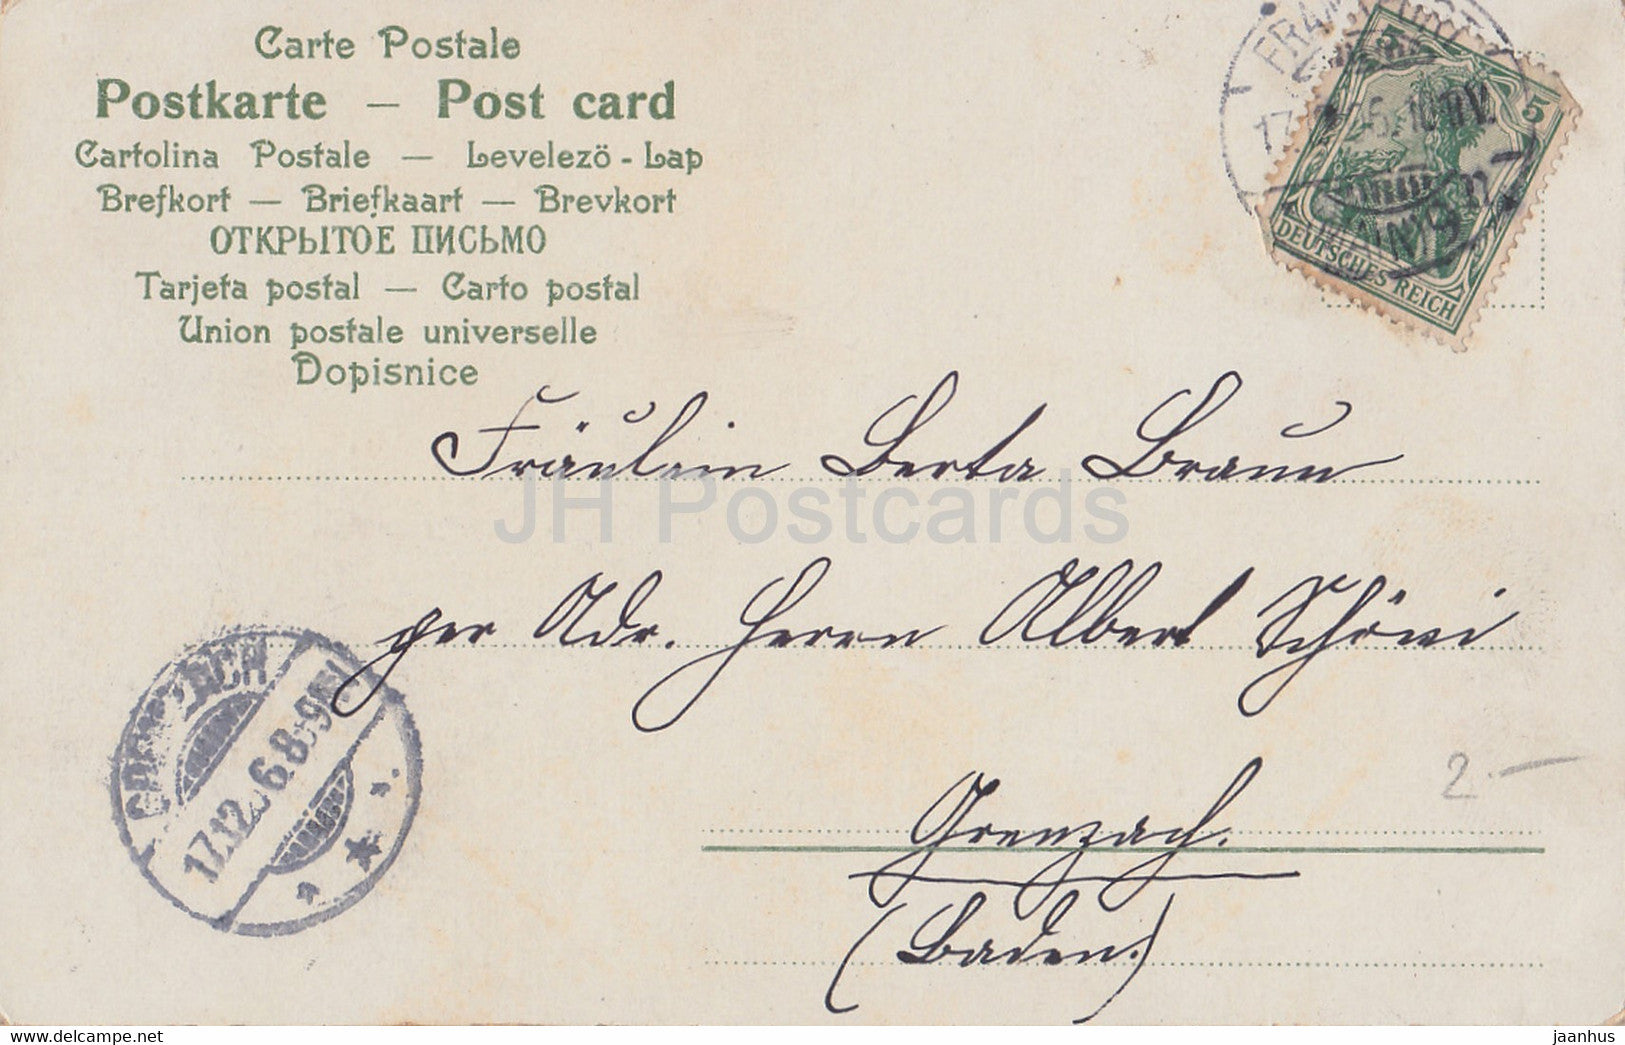 Carte Postale
Postkarte — Post card
Cartolina Postale — Levelezö - Lap
Brefkort — Briefkaart — Brevkort
ОТКРЫТОЕ ПИСЬМО
Tarjeta postal — Carto postal
Union postale universelle
Dopisnice
5 5
DEUTSCHES REICH
Fräulein Berta Braun
JH Postcards
per Adr. Herrn Albert Schöni
GRENZACH
17.12.06.8-9N.
Grenzach.
(Baden.)
2.—
hippostcard.com
jaanhus